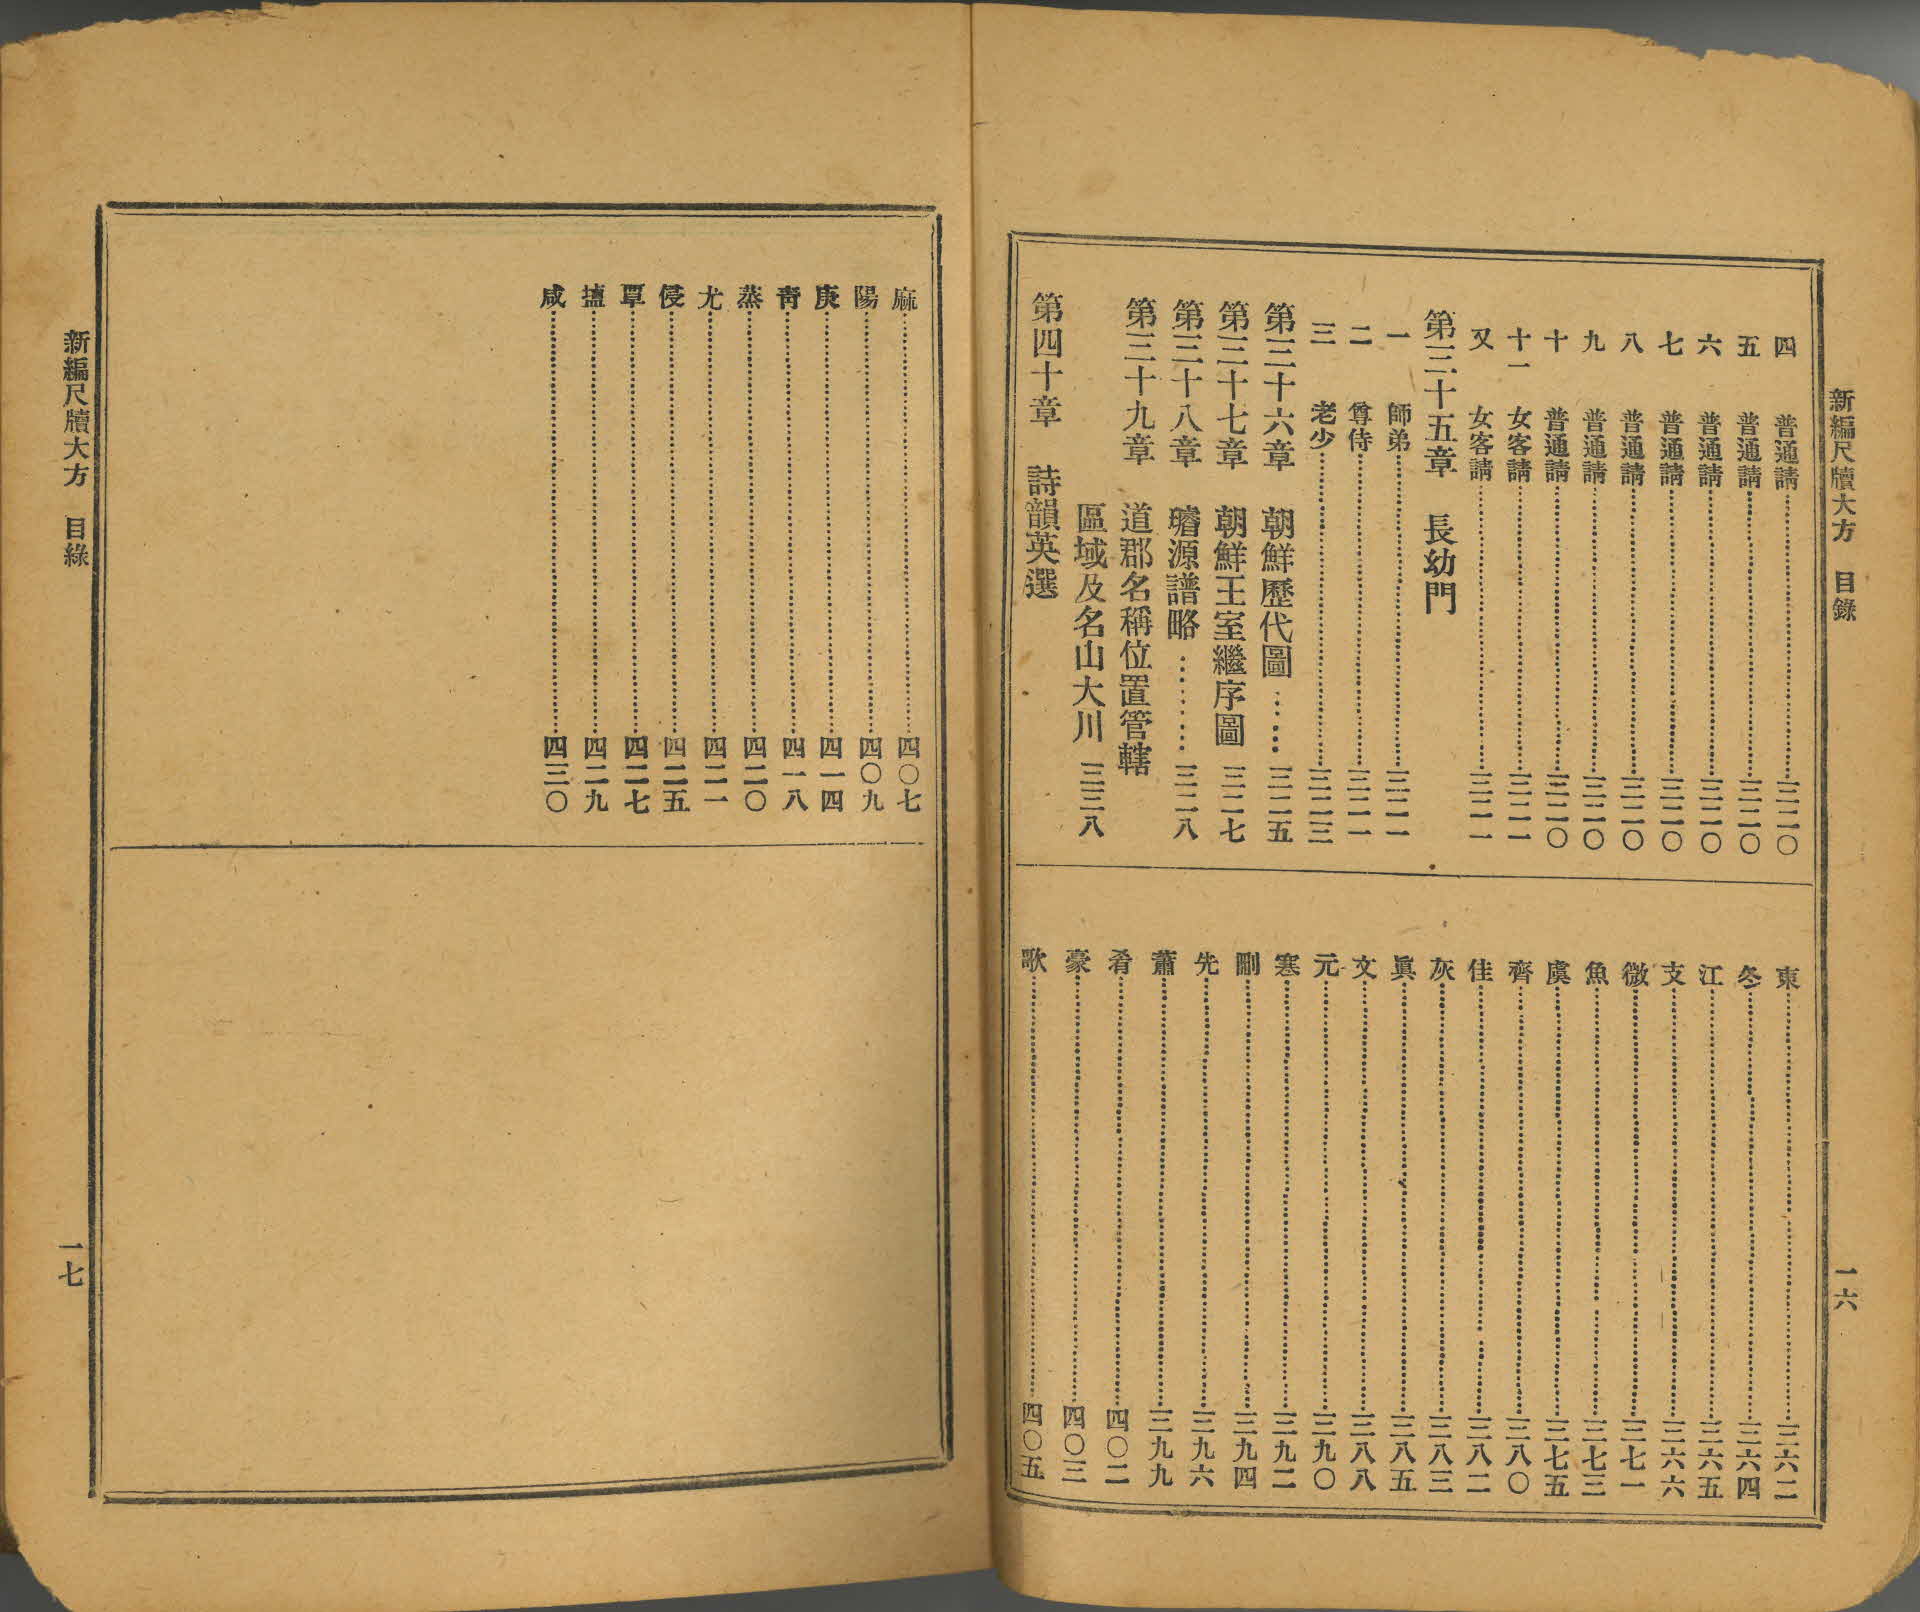 新編尺牘大方 目錄
一六
四 普通請 三二〇
五 普通請 三二〇
六 普通請 三二〇
七 普通請 三二〇
八 普通請 三二〇
九 普通請 三二〇
十 普通請 三二〇
十一 女客請 三二一
又 女客請 三二一
第三十五章 長幼門
一 師弟 三二一
二 尊侍 三二一
三 老少 三二三
第三十六章 朝鮮歷代圖 三二五
第三十七章 朝鮮王室繼序圖 三二七
第三十八章 璿源譜略 三二八
第三十九章 道郡名稱位置管轄
區域及名山大川 三三八
第四十章 詩韻英選
東 三六二
冬 三六四
江 三六五
支 三六六
微 三七一
魚 三七三
虞 三七五
齊 三八〇
佳 三八二
灰 三八三
眞 三八五
文 三八八
元 三九〇
寒 三九二
刪 三九四
先 三九六
蕭 三九九
肴 四〇二
豪 四〇三
歌 四〇五
麻 四〇七
陽 四〇九
庚 四一四
靑 四一八
蒸 四二〇
尤 四二一
侵 四二五
覃 四二七
鹽 四二九
咸 四三〇
新編尺牘大方 目錄
一七